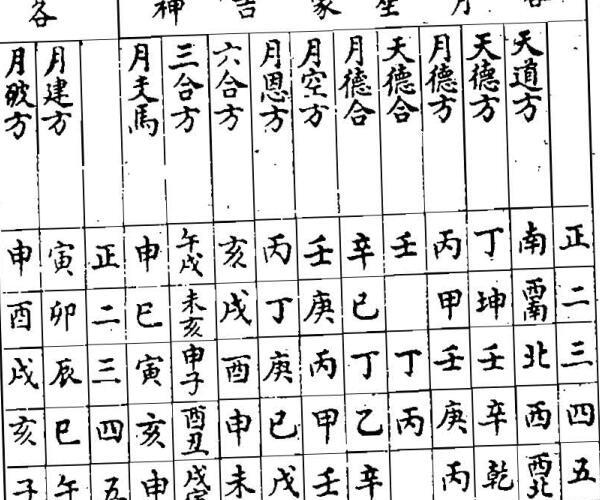 各月星家吉神
正二三四五
天道方南西南北西西北
天德方丁坤壬辛乾
月德方丙甲壬庚丙
天德合壬丁丙
月德合辛已丁乙辛
月空方壬庚丙甲壬
月恩方丙丁庚已戊
六合方亥戌酉申未
三合方午戌未亥申子酉丑戌寅
月支馬申巳寅亥申
各
正二三四五
月建方寅卯辰巳午
月破方申酉戌亥子